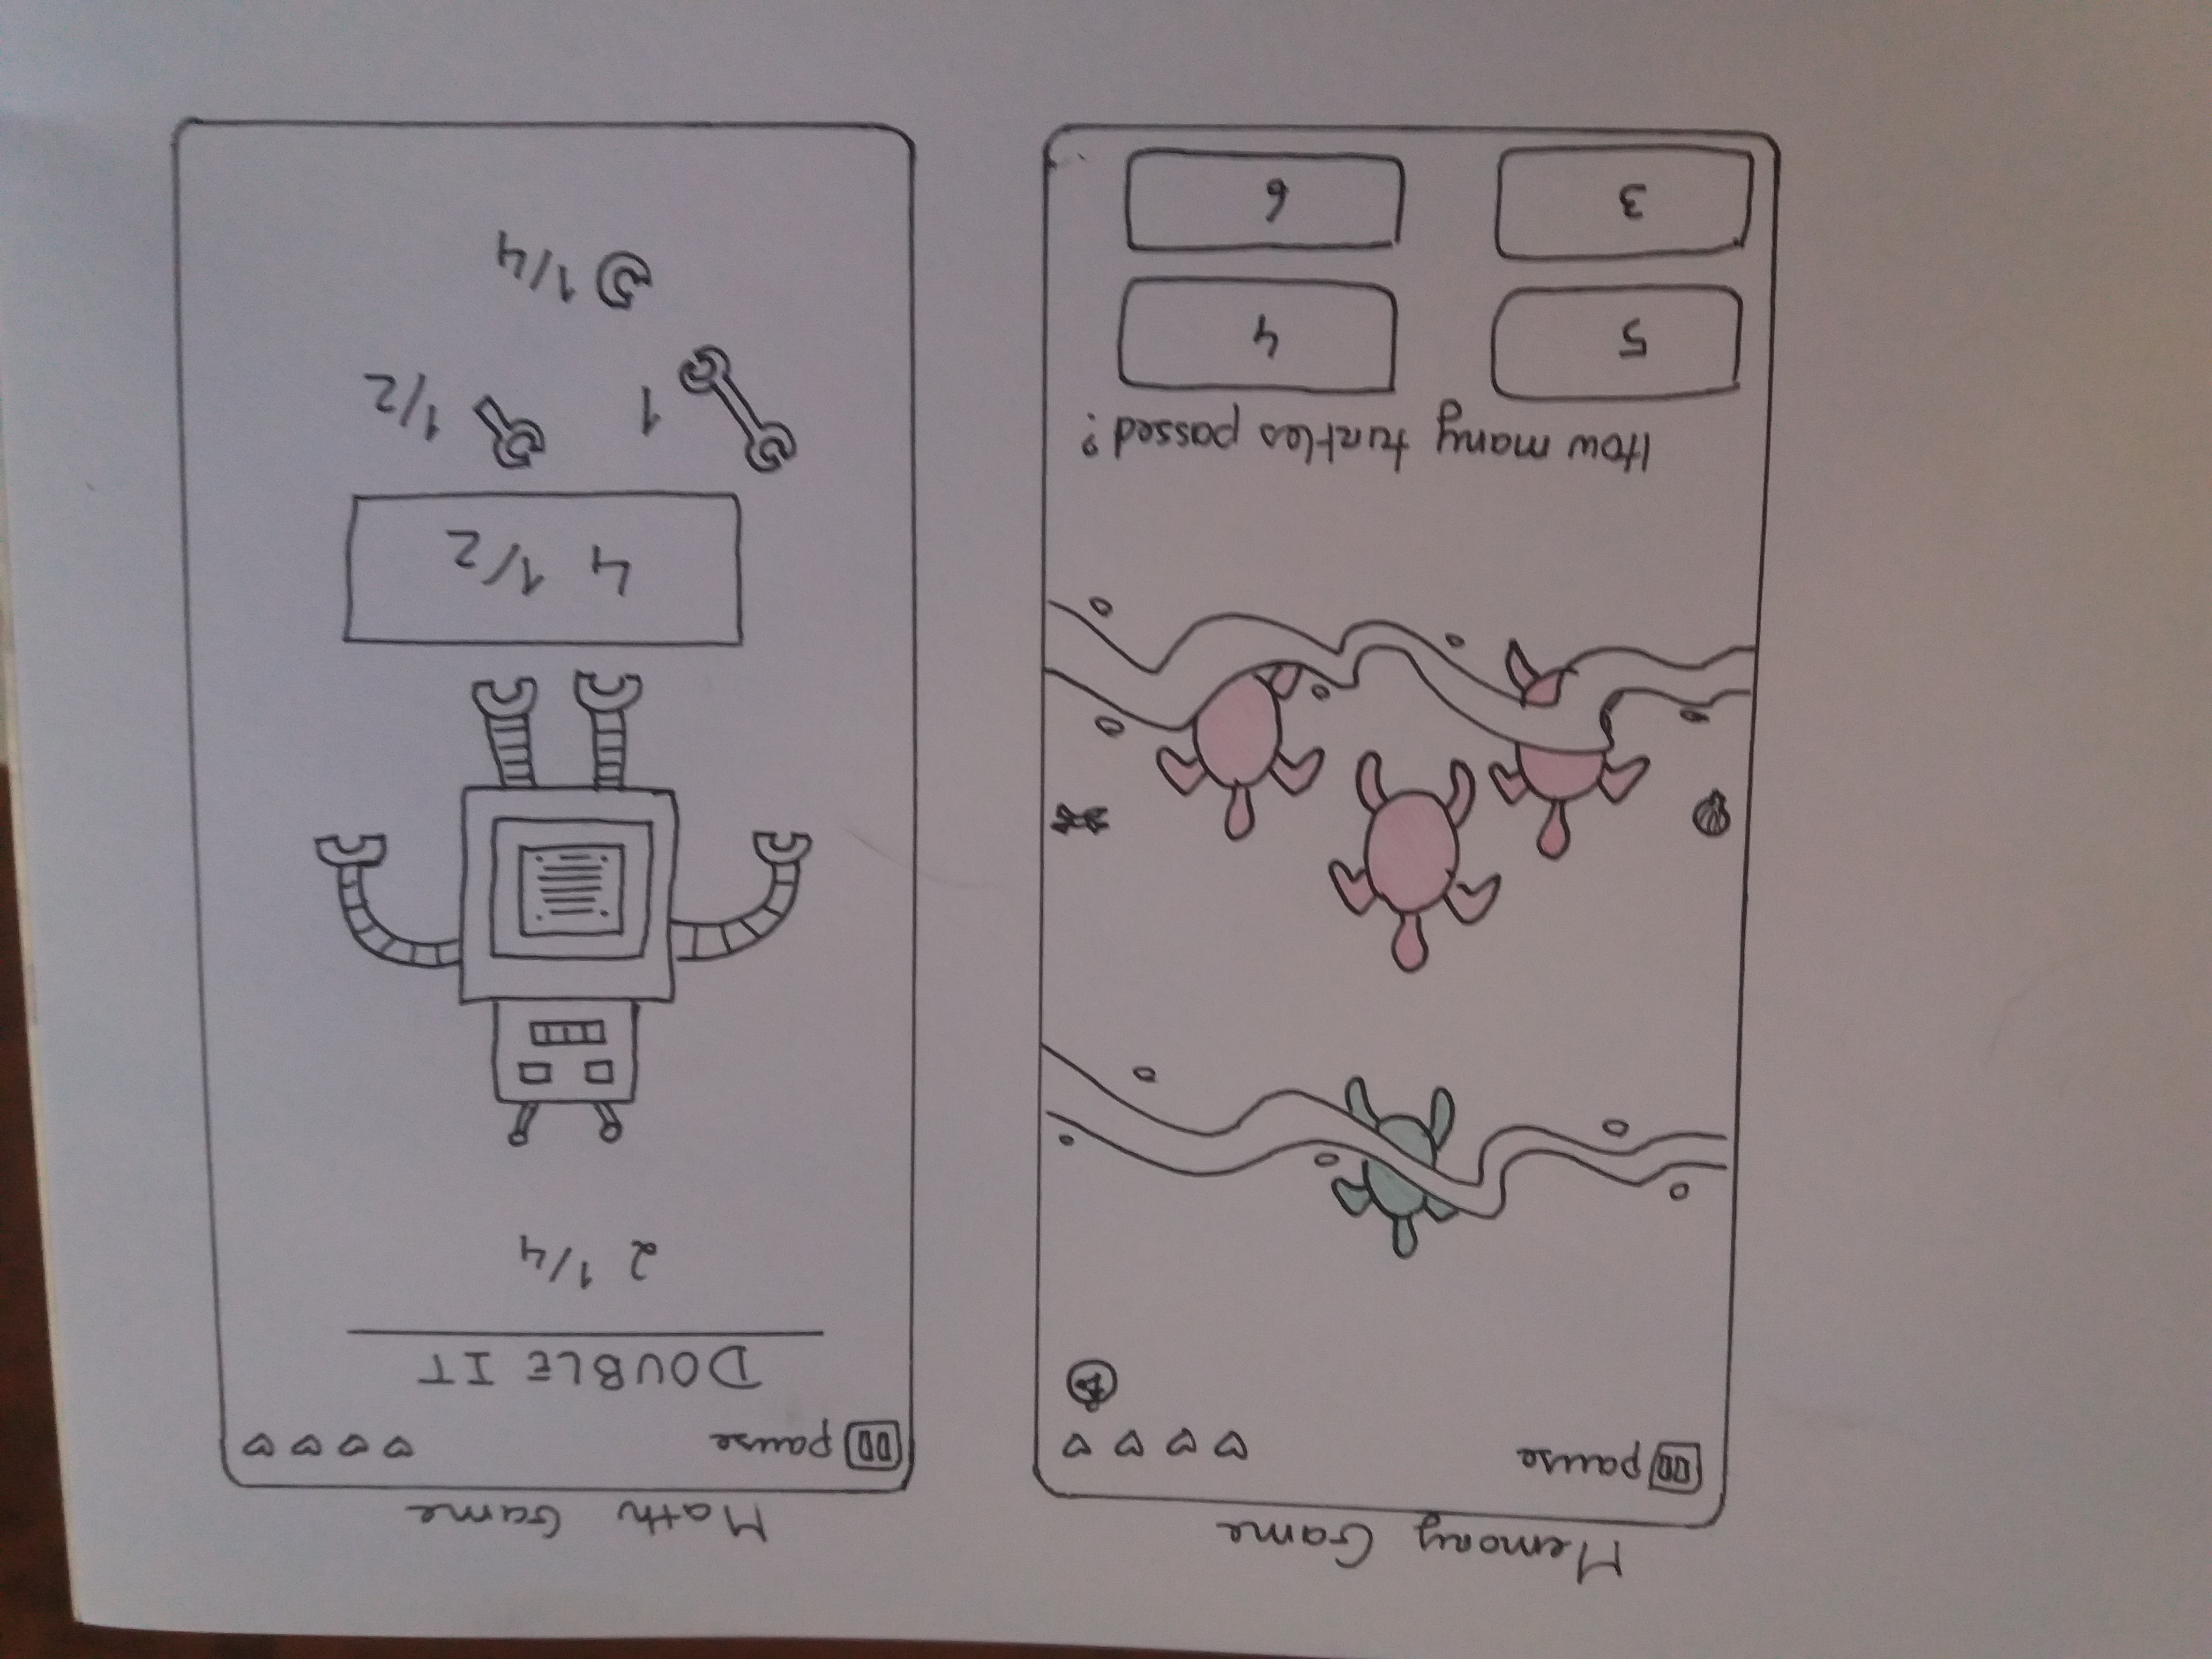 Memory Game
pause
How many turtles passed?
5
4
3
6
Math Game
pause
DOUBLE IT
2 1/4
4 1/2
1
1/2
1/4